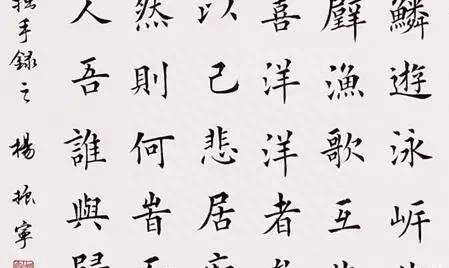 鱗遊泳岍
璧漁歌互
喜洋洋者
以己悲居
然則何旹
人吾誰與歸
手録之 楊振寧